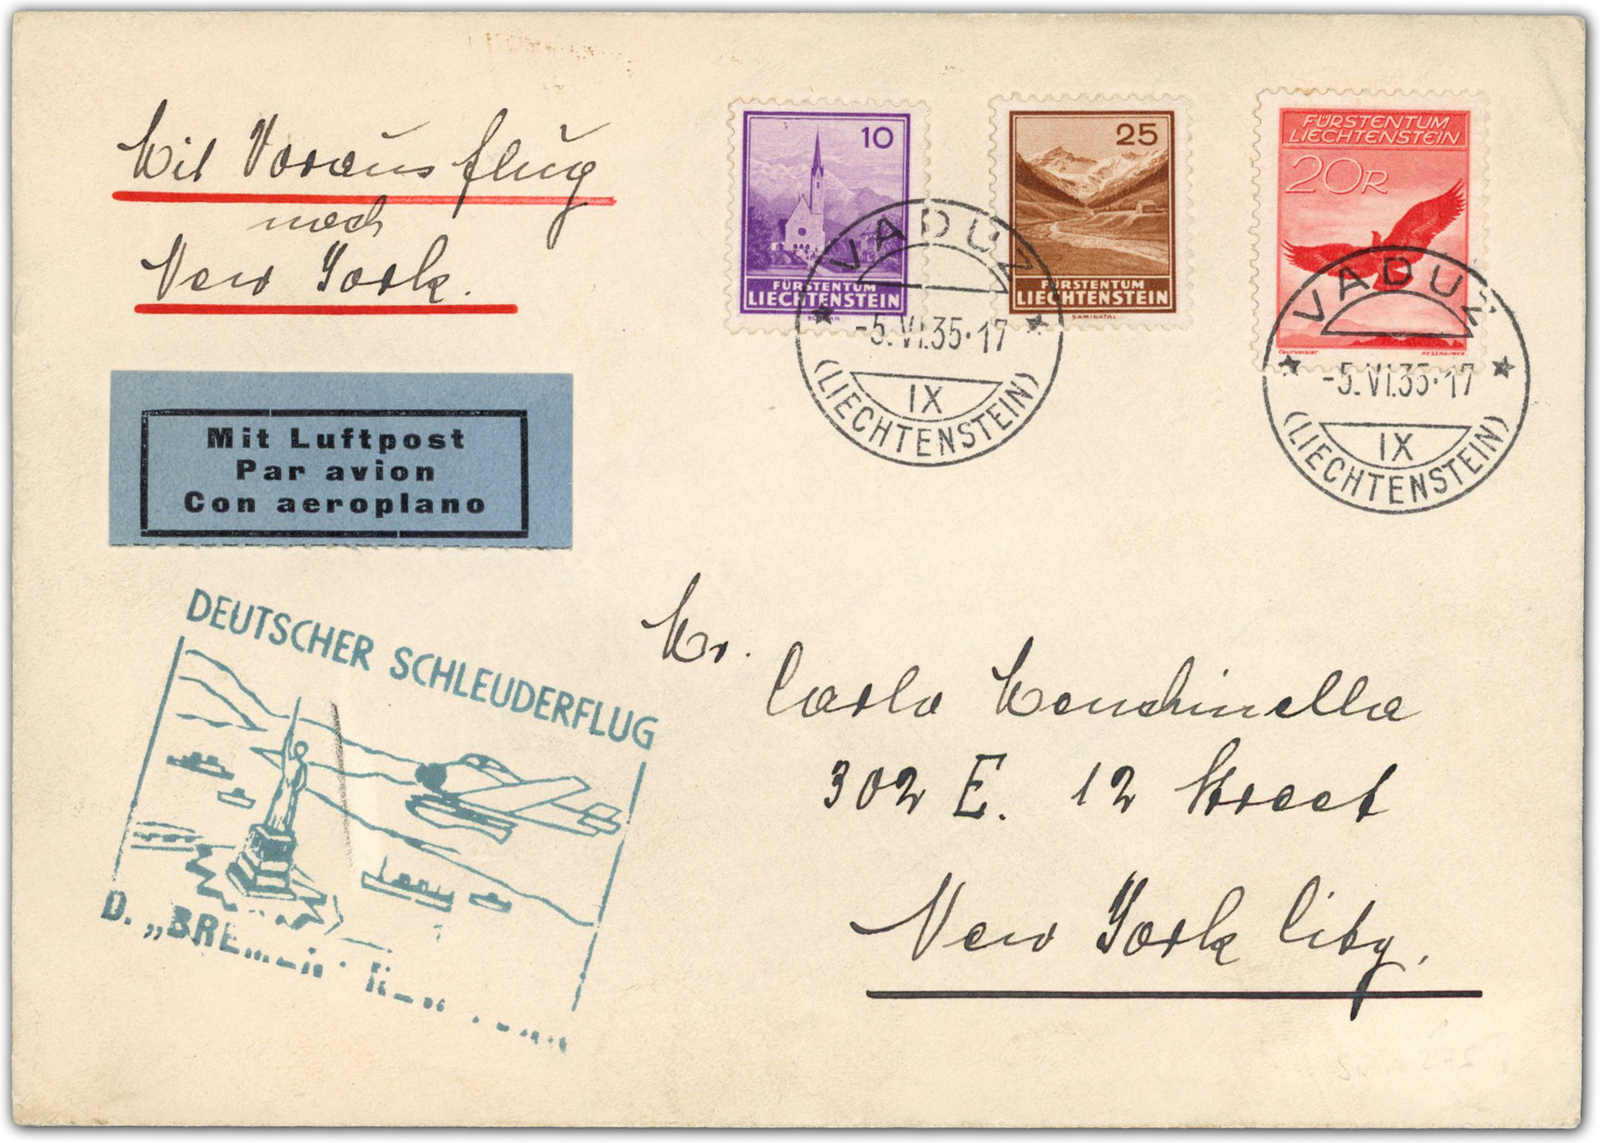 Mit Vorausflug
nach
New York.
10
FÜRSTENTUM
LIECHTENSTEIN
25
FÜRSTENTUM
LIECHTENSTEIN
SAMINATAL
FÜRSTENTUM
LIECHTENSTEIN
20R
VADUZ
-5.VI.35·17
IX
(LIECHTENSTEIN)
VADUZ
-5.VI.35·17
IX
(LIECHTENSTEIN)
Mit Luftpost
Par avion
Con aeroplano
DEUTSCHER SCHLEUDERFLUG
D. „BREMEN"
Mr.
Carlo
302 E. 12 Street
New York City.